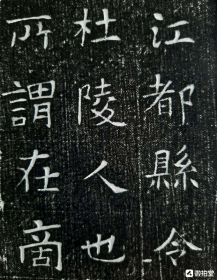 江都縣令
杜陵人也
所謂在啇